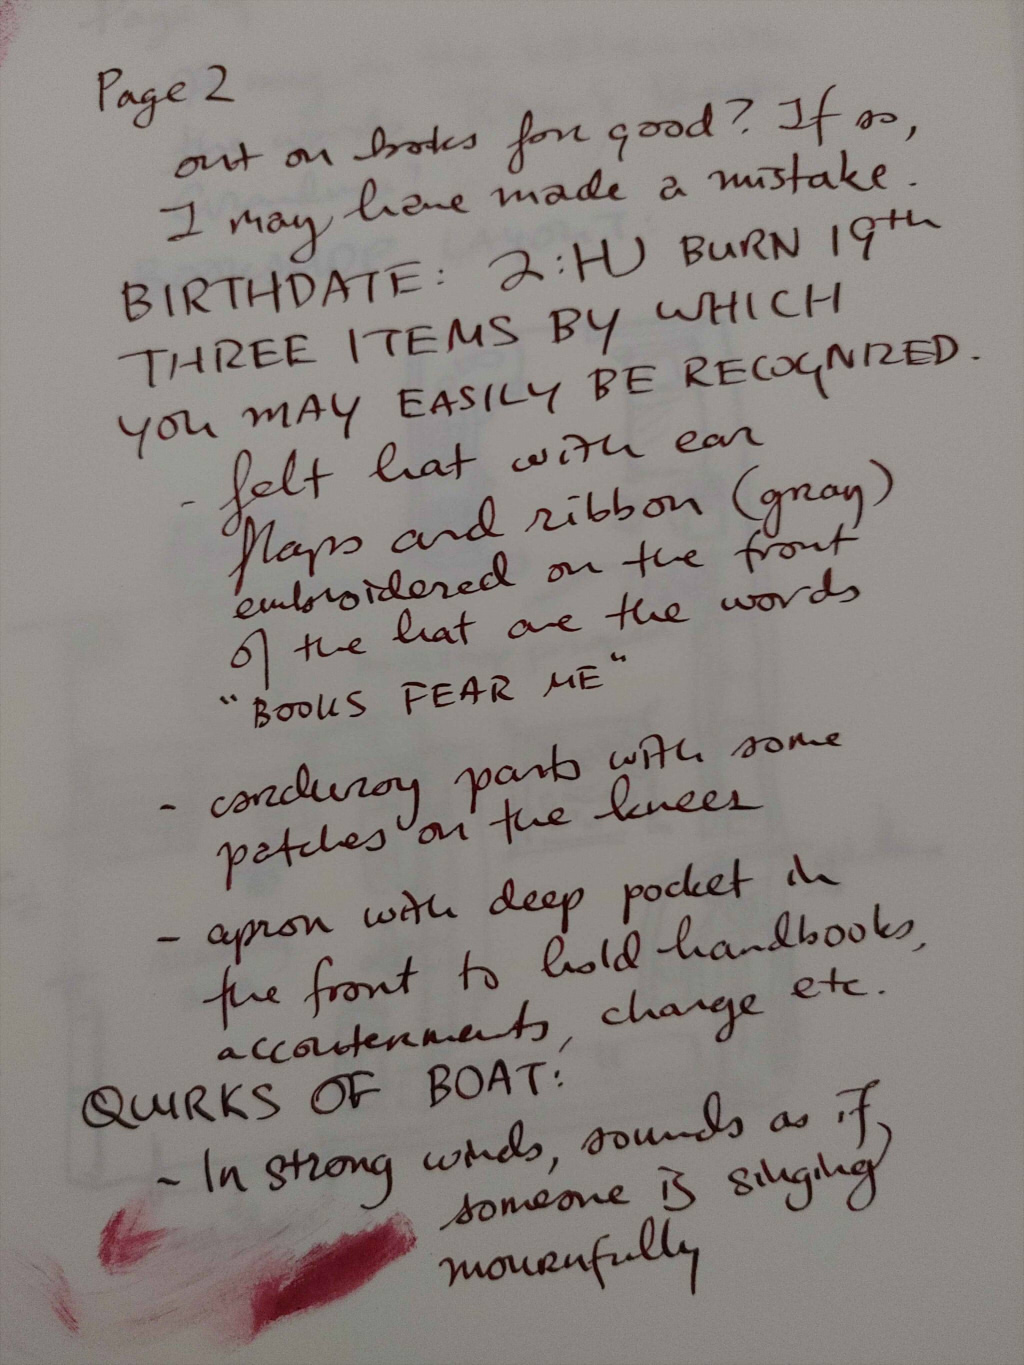 Page 2
out on books for good? If so,
I may have made a mistake.
BIRTHDATE: 2:HU BURN 19th
THREE ITEMS BY WHICH
YOU MAY EASILY BE RECOGNIZED.
- felt hat with ear
flaps and ribbon (gray)
embroidered on the front
of the hat are the words
"BOOKS FEAR ME"
- corduroy pants with some
patches on the knees
- apron with deep pocket in
the front to hold handbooks,
accouterments, change etc.
QUIRKS OF BOAT:
- In strong winds, sounds as if
someone is singing
mournfully